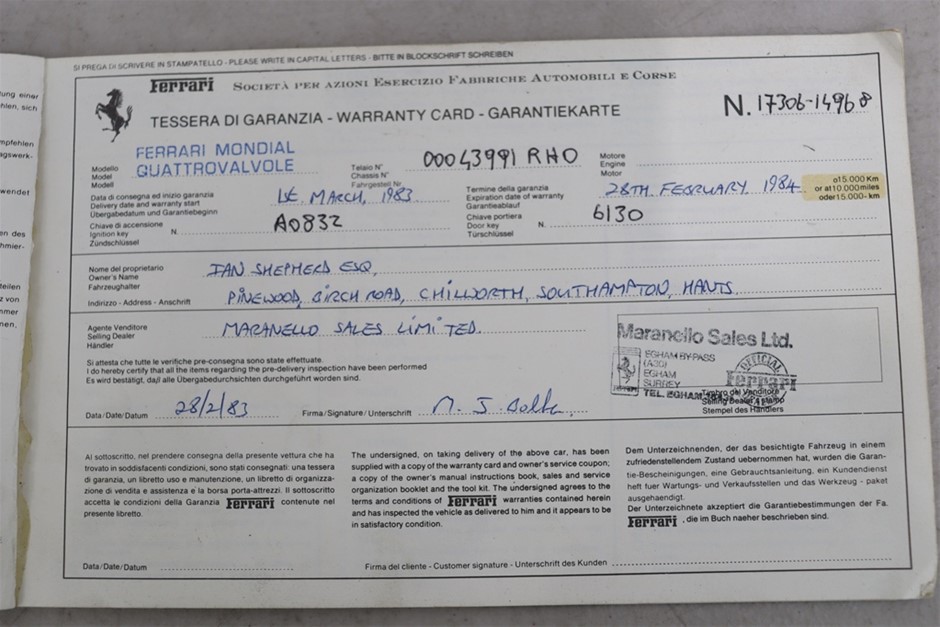 SI PREGA DI SCRIVERE IN STAMPATELLO - PLEASE WRITE IN CAPITAL LETTERS - BITTE IN BLOCKSCHRIFT SCHREIBEN
Ferrari SOCIETÀ PER AZIONI ESERCIZIO FABBRICHE AUTOMOBILI E CORSE
TESSERA DI GARANZIA - WARRANTY CARD - GARANTIEKARTE
N. 17306-14968
Modello
Model
Modell
FERRARI MONDIAL
QUATTROVALVOLE
Telaio N°
Chassis N°
Fahrgestell Nr.
00043991 RHO
Motore
Engine
Motor
Data di consegna ed inizio garanzia
Delivery date and warranty start
Übergabedatum und Garantiebeginn
1st MARCH, 1983
Termine della garanzia
Expiration date of warranty
Garantieablauf
28TH FEBRUARY 1984
o 15.000 Km
or at 10.000 miles
oder 15.000- km
Chiave di accensione
Ignition key
Zündschlüssel
N. A0832
Chiave portiera
Door key
Türschlüssel
N. 6130
Nome del proprietario
Owner's Name
Fahrzeughalter
IAN SHEPHERD ESQ,
Indirizzo - Address - Anschrift
PINEWOOD, BIRCH ROAD, CHILWORTH, SOUTHAMPTON, HANTS
Agente Venditore
Selling Dealer
Händler
MARANELLO SALES LIMITED.
Maranello Sales Ltd.
EGHAM BY-PASS
(A30)
EGHAM
SURREY
TEL. EGHAM
OFFICIAL
Ferrari
Timbro del Venditore
Selling Dealer's stamp
Stempel des Händlers
Si attesta che tutte le verifiche pre-consegna sono state effettuate.
I do hereby certify that all the items regarding the pre-delivery inspection have been performed
Es wird bestätigt, daß alle Übergabedurchsichten durchgeführt worden sind.
Data/Date/Datum 28/2/83
Firma/Signature/Unterschrift
Al sottoscritto, nel prendere consegna della presente vettura che ha
trovato in soddisfacenti condizioni, sono stati consegnati: una tessera
di garanzia, un libretto uso e manutenzione, un libretto di organizza-
zione di vendita e assistenza e la borsa porta-attrezzi. Il sottoscritto
accetta le condizioni della Garanzia Ferrari contenute nel
presente libretto.
The undersigned, on taking delivery of the above car, has been
supplied with a copy of the warranty card and owner's service coupon;
a copy of the owner's manual instructions book, sales and service
organization booklet and the tool kit. The undersigned agrees to the
terms and conditions of Ferrari warranties contained herein
and has inspected the vehicle as delivered to him and it appears to be
in satisfactory condition.
Dem Unterzeichnenden, der das besichtigte Fahrzeug in einem
zufriedenstellendem Zustand uebernommen hat, wurden die Garan-
tie-Bescheinigungen, eine Gebrauchtsanleitung, ein Kundendienst
heft fuer Wartungs - und Verkaufsstellen und das Werkzeug - paket
ausgehaendigt.
Der Unterzeichnete akzeptiert die Garantiebestimmungen der Fa.
Ferrari, die im Buch naeher beschrieben sind.
Data/Date/Datum
Firma del cliente - Customer signature - Unterschrift des Kunden